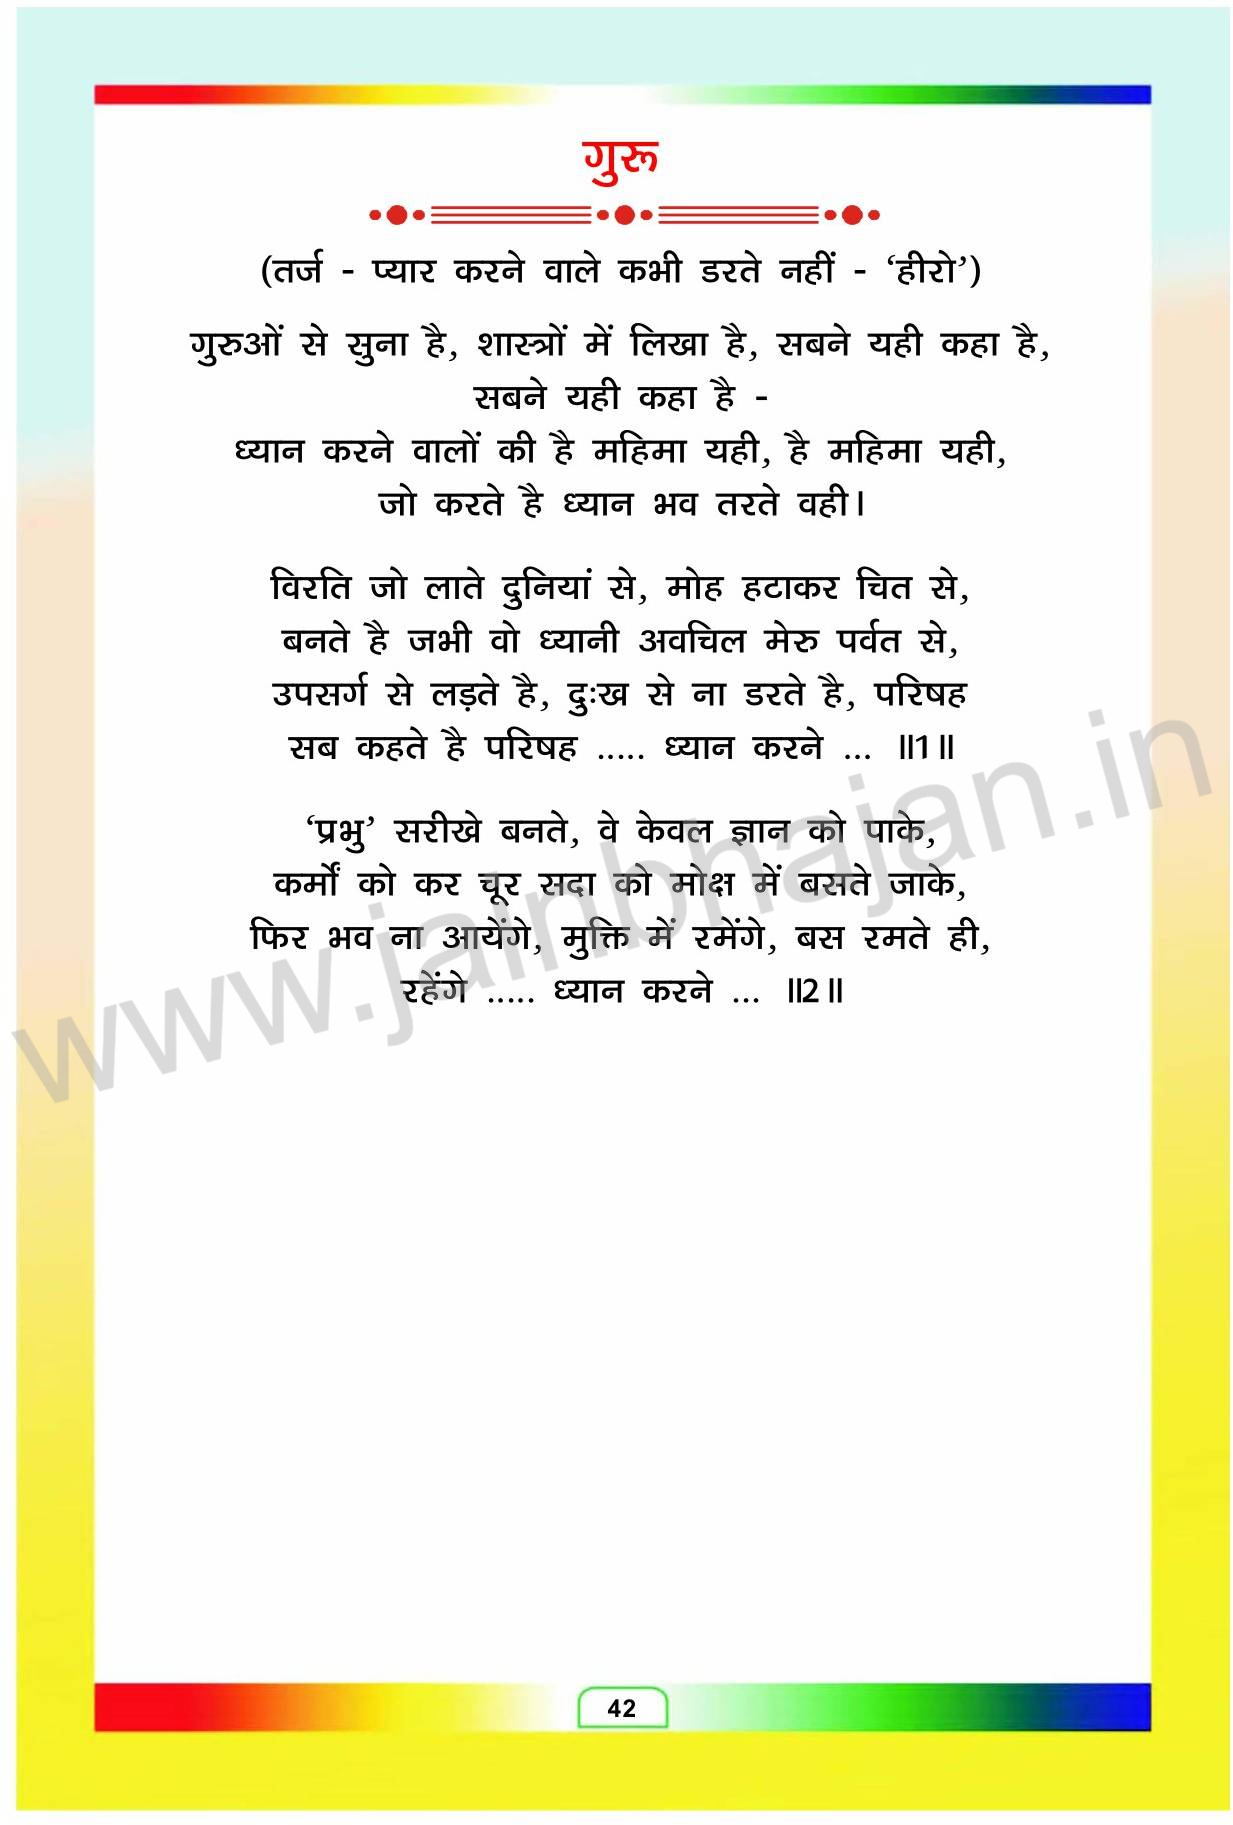 गुरू
(तर्ज - प्यार करने वाले कभी डरते नहीं - ‘हीरो’)
गुरुओं से सुना है, शास्त्रों में लिखा है, सबने यही कहा है,
सबने यही कहा है -
ध्यान करने वालों की है महिमा यही, है महिमा यही,
जो करते है ध्यान भव तरते वही।
विरति जो लाते दुनियां से, मोह हटाकर चित से,
बनते है जभी वो ध्यानी अवचिल मेरु पर्वत से,
उपसर्ग से लड़ते है, दुःख से ना डरते है, परिषह
सब कहते है परिषह ..... ध्यान करने ... ॥1॥
‘प्रभु’ सरीखे बनते, वे केवल ज्ञान को पाके,
कर्मों को कर चूर सदा को मोक्ष में बसते जाके,
फिर भव ना आयेंगे, मुक्ति में रमेंगे, बस रमते ही,
रहेंगे ..... ध्यान करने ... ॥2॥
www.jainbhajan.in
42